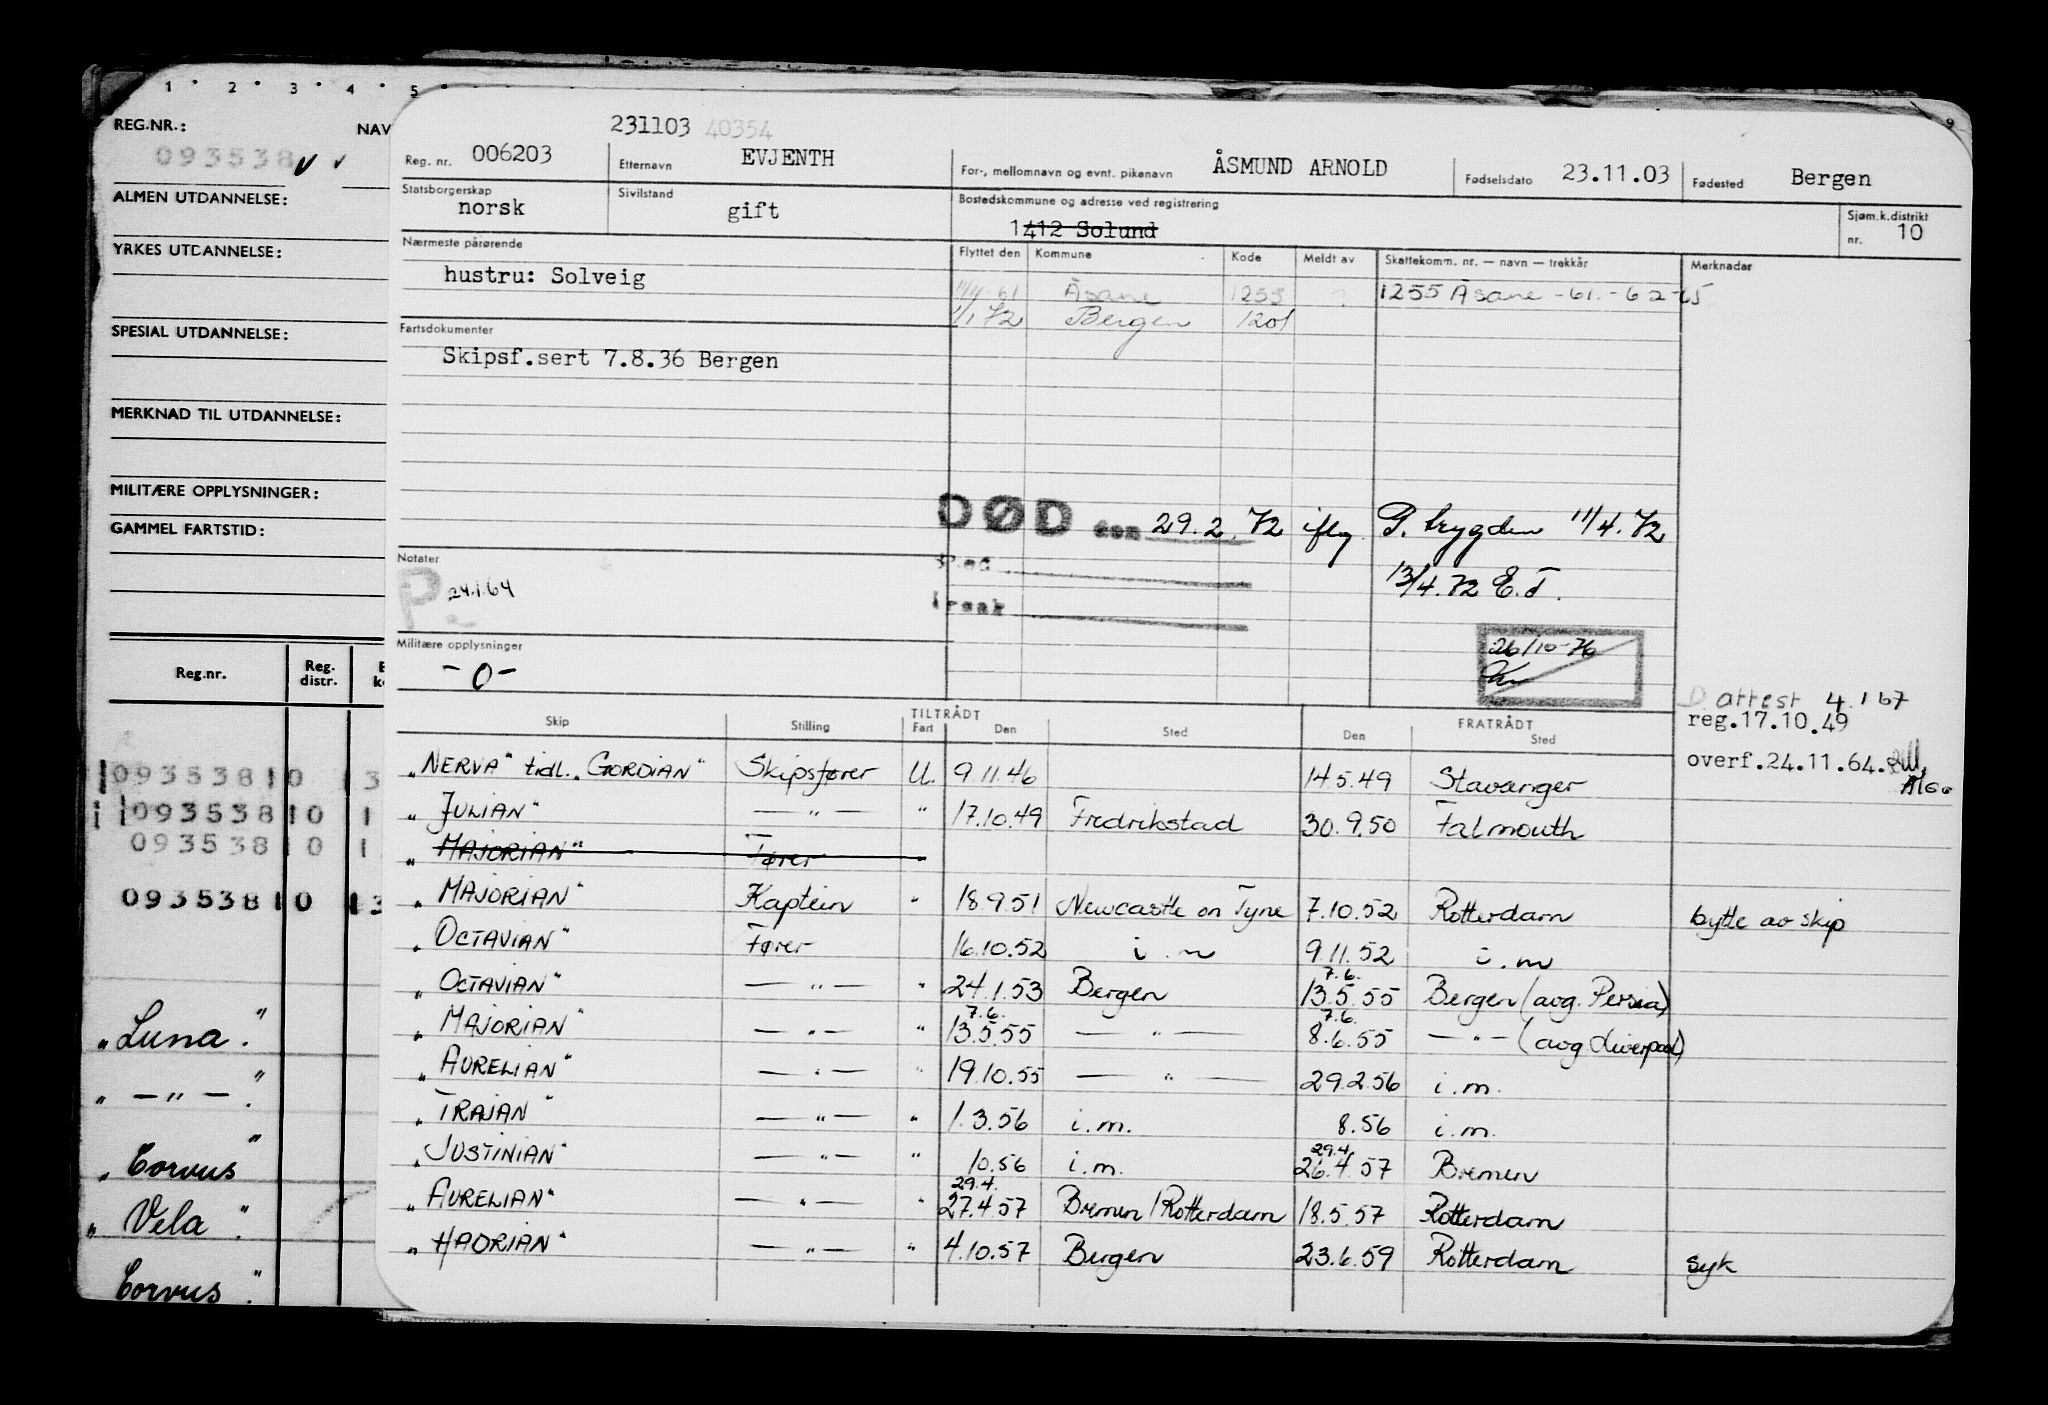 1 2 3 4 5
9
REG.NR.: NAV
093538
ALMEN UTDANNELSE:
YRKES UTDANNELSE:
SPESIAL UTDANNELSE:
MERKNAD TIL UTDANNELSE:
MILITÆRE OPPLYSNINGER:
GAMMEL FARTSTID:
Reg.nr. Reg. distr.
093538 0 3
093538 0 1
093538 0 1
093538 0 3
"Luna".
" — " — ".
"Corvus"
"Vela".
Corvus".
231103 40354
Reg. nr. 006203 Etternavn EVJENTH For-, mellomnavn og evnt. pikenavn ÅSMUND ARNOLD Fødselsdato 23.11.03 Fødested Bergen
Statsborgerskap norsk Sivilstand gift Bostedskommune og adresse ved registrering 1412 Solund Sjøm.k.distrikt nr. 10
Nærmeste pårørende Flyttet den Kommune Kode Meldt av Skattekomm. nr. — navn — trekkår Merknader
hustru: Solveig 11/4-61 Åsane 1255 1255 Åsane -61.-62-65
1/1 72 Bergen 1201
Fartsdokumenter
Skipsf.sert 7.8.36 Bergen
DØD den 29.2.72 iflg. P. trygden 11/4.72
Sted 13/4.72 E.T.
Årsak
Notater
P 24.1.64
Militære opplysninger
-0-
26/10-76
D. attest 4.1 67
reg.17.10.49
overf.24.11.64.
Skip Stilling TILTRÅDT Fart Den Sted FRATRÅDT Den Sted
"NERVA" tidl. "GORDIAN" Skipsfører U. 9.11.46 14.5.49 Stavanger
"JULIAN" — " — " 17.10.49 Fredrikstad 30.9.50 Falmouth
"MAJORIAN" Fører
"MAJORIAN" Kaptein " 18.9.51 Newcastle on Tyne 7.10.52 Rotterdam bytte av skip
"OCTAVIAN" Fører 16.10.52 i.m 9.11.52 i.m
"OCTAVIAN" — " — " 24.1.53 Bergen 7.6. 13.5.55 Bergen (avg. Persia)
"MAJORIAN" — " — " 7.6. 13.5.55 — " — 7.6. 8.6.55 — " — (avg Liverpool)
"AURELIAN" — " — " 19.10.55 — " — 29.2.56 i.m.
"TRAJAN" — " — " 1.3.56 i.m. 8.56 i.m.
"JUSTINIAN" — " — " 10.56 i.m. 29.4. 26.4.57 Bremen
"AURELIAN" — " — " 29.4. 27.4.57 Bremen/Rotterdam 18.5.57 Rotterdam
"HADRIAN" — " — " 4.10.57 Bergen 23.6.59 Rotterdam syk